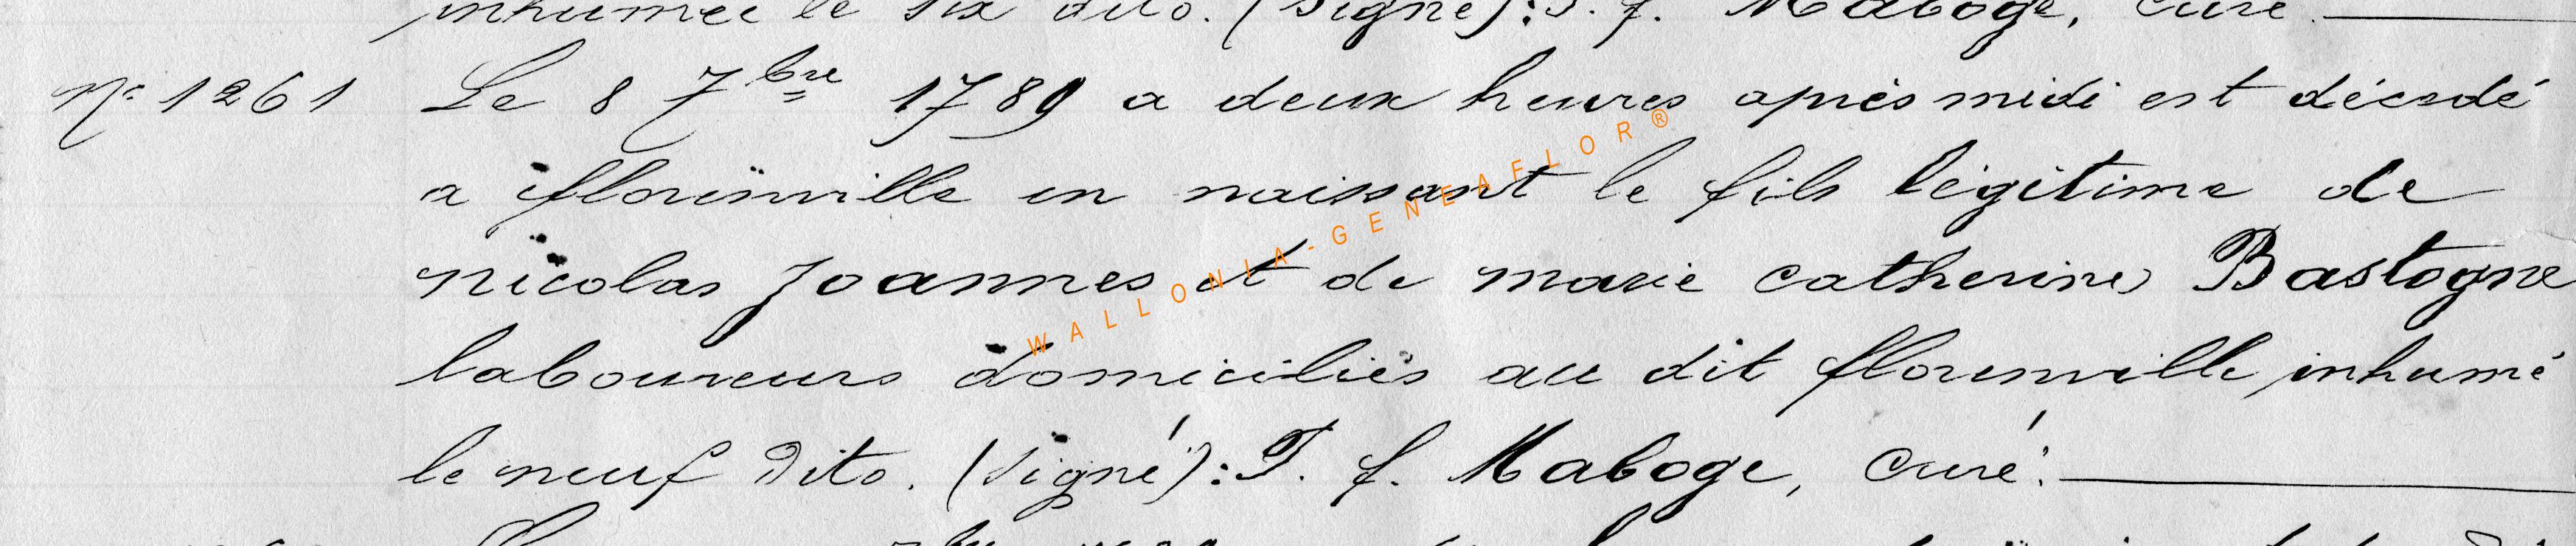 inhumée le six dito. (Signé): T. f. Maboge, Curé.
N° 1261 Le 8 7bre 1789 a deux heures après midi est décédé
a florinville en naissant le fils légitime de
nicolas Joannes et de marie catherine Bastogne
laboureurs domiciliés au dit florenville, inhumé
le neuf Dito. (Signé): T. f. Maboge, Curé.
WALLONIA-GENEAFLOR®